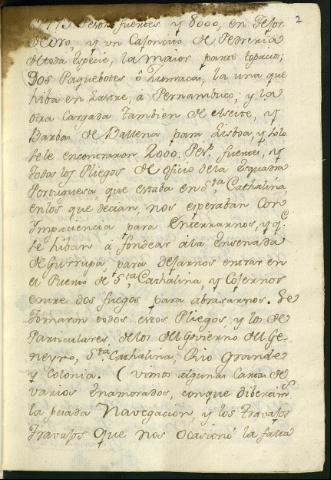 2
pesos fuertes y 8000, en Texos
de oro y un Caxoncito de Pedreria
de toda espécie, la maior parte topacio;
Dos Paquebotes ò Zumacas, la una que
hiba en Lastre, a Pernambuco, y la
otra Cargada tambien de Aceite, y
Barbas de Ballena para Lisboa, y solo
se le encontraron 2000. Pes. fuertes, y
todos los Pliegos de oficio de la Esquadra
Portuguesa que estaba en Sta Cathalina
en los que decian, nos esperaban con
Impaciencia para Enterrarnos, y qe
se hiban à fondear ala Ensenada
de Gurrupá, para dejarnos entrar en
el Puerto de Sta Cathalina, y Cojernos
entre dos fuegos para abrasarnos. Se
tomaron todos estos Pliegos, y los de
Particulares, de los del Govierno del Ge-
neyro, Sta Cathalina, Rio Grande
y Colonia. (vimos algunas Cartas de
varios Enamorados, conque dibertimos
la pesada Navegacion, y los travajos
travajos que nos ocasionó la falta